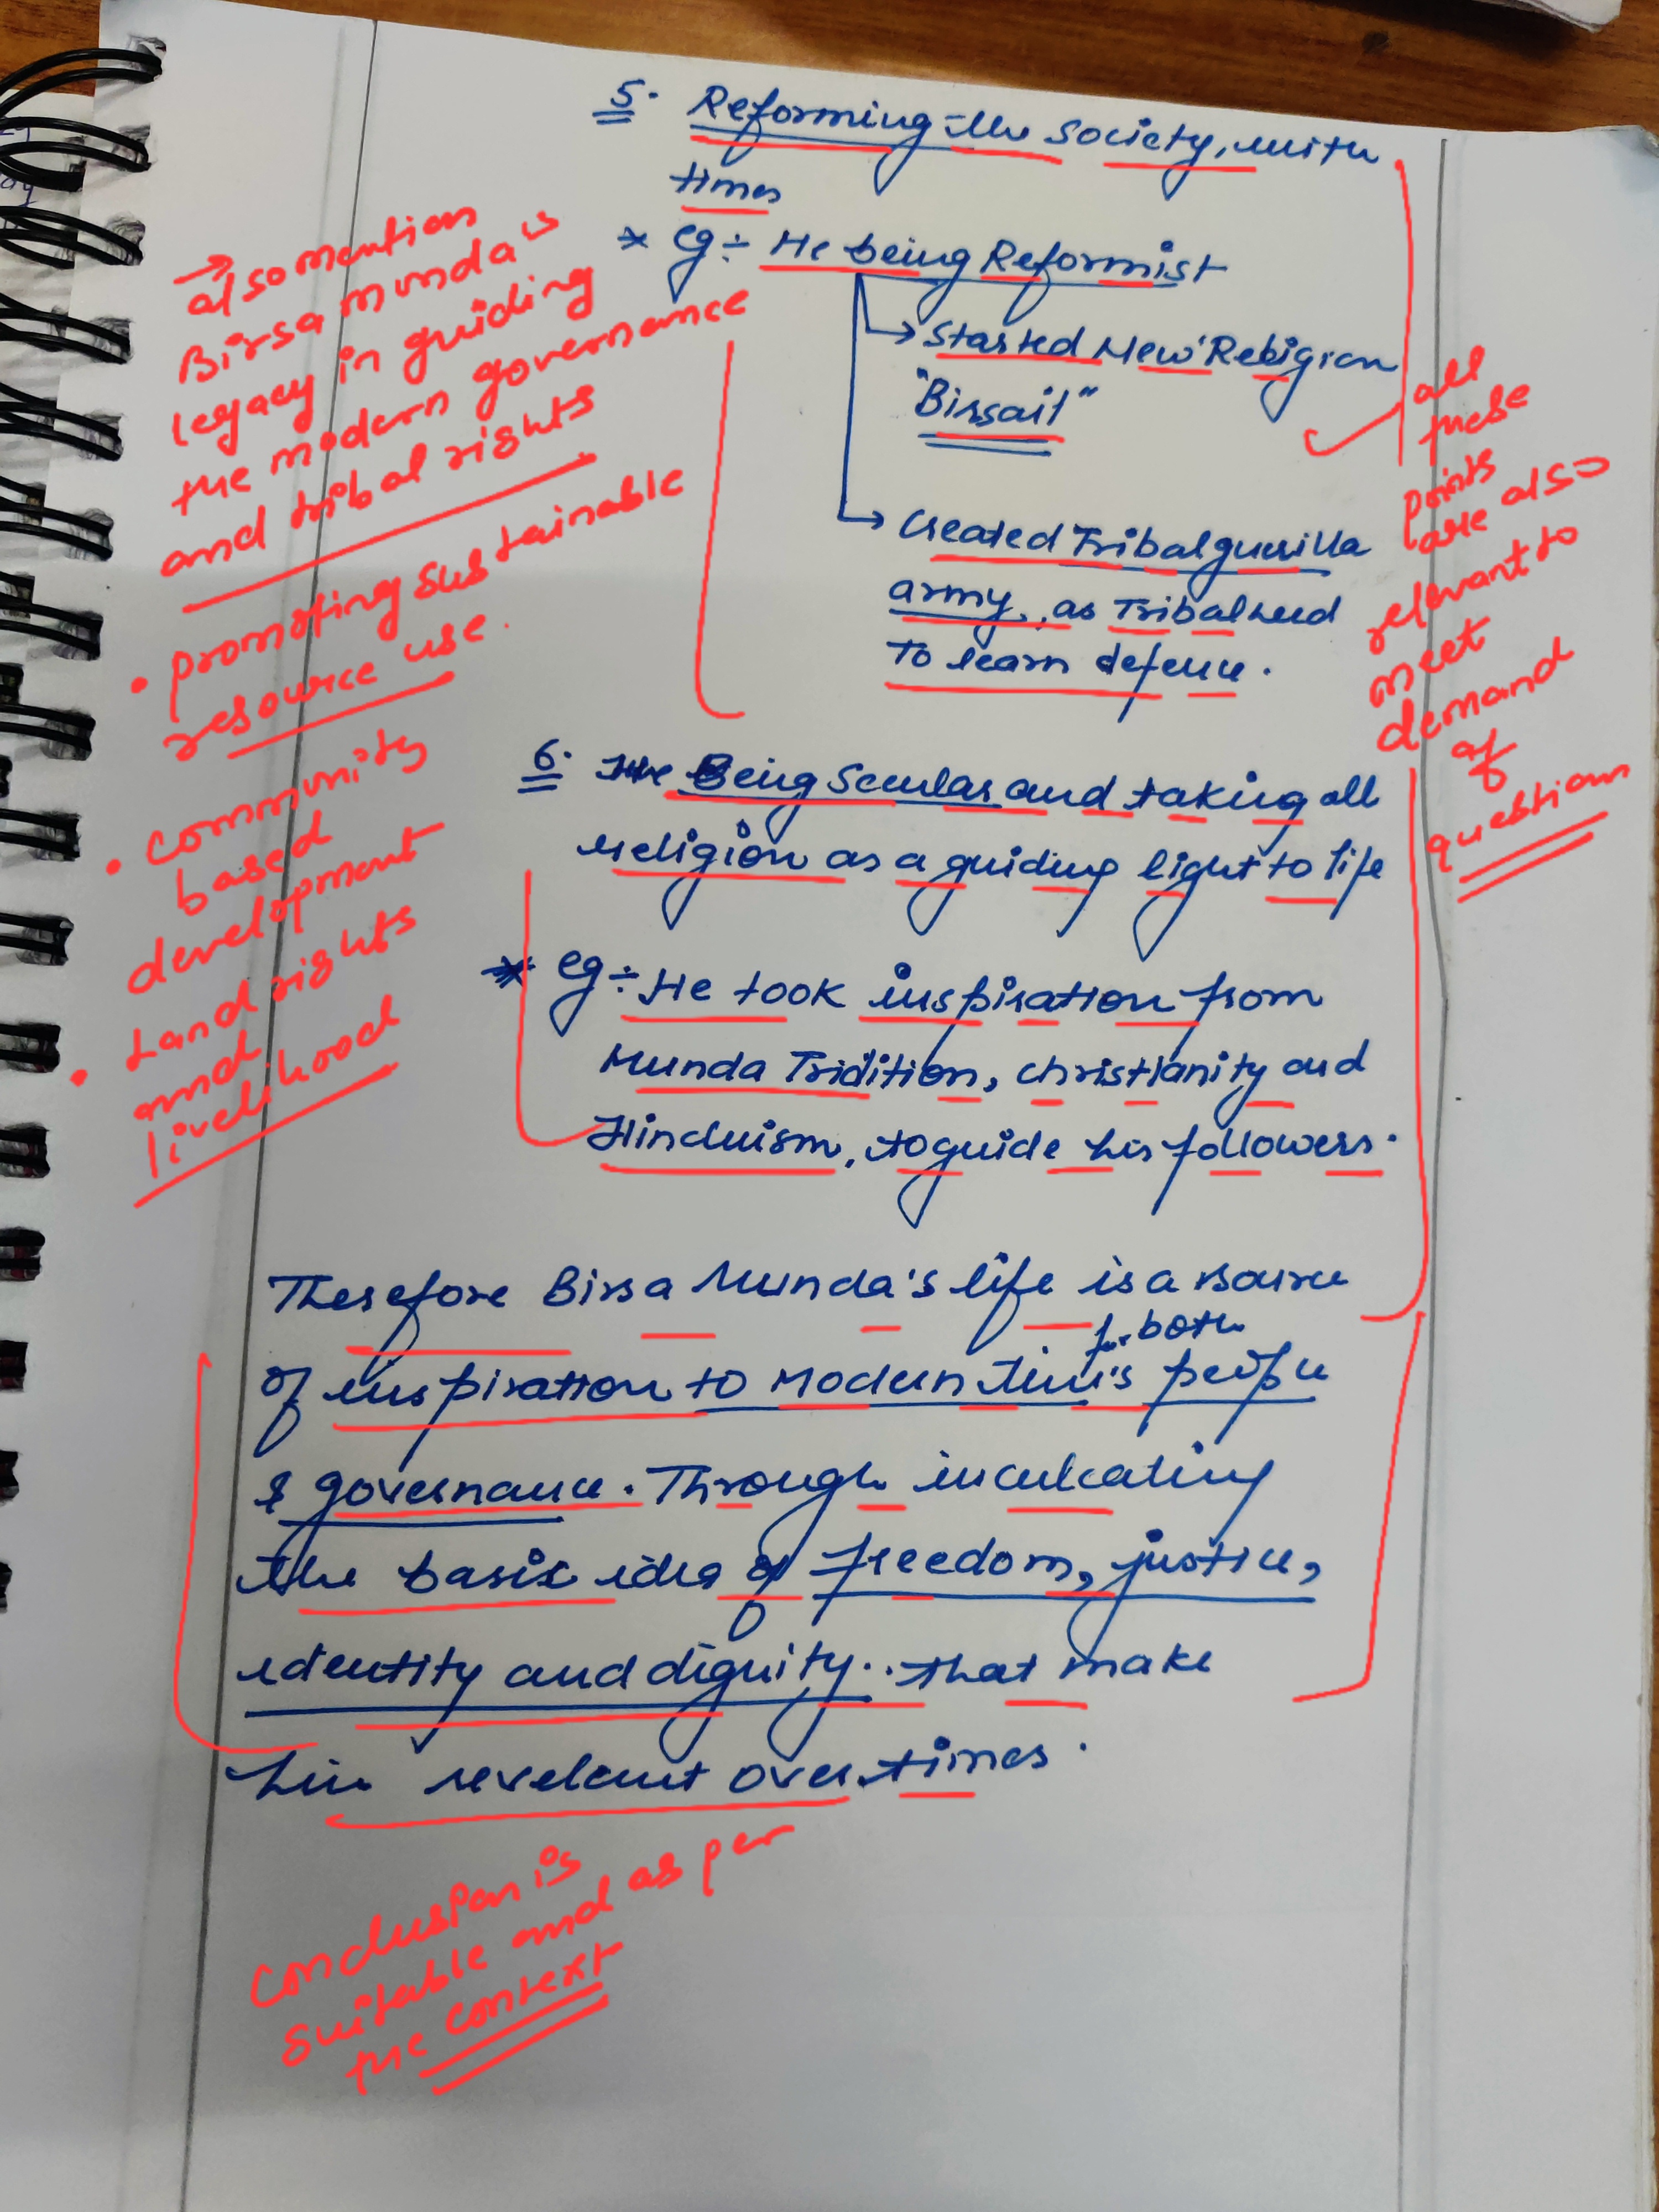 5. Reforming the Society, with
times
* eg ÷ He being Reformist
→ Started New Religion
"Birsait"
→ Created Tribal guerilla
army, as Tribal need
to learn defence.
6. The Being Secular and taking all
religion as a guiding light to life
* eg ÷ He took inspiration from
Munda Tridition, christianity and
Hinduism, to guide his followers.
Therefore Birsa Munda's life is a source
for both
of inspiration to Modern Time's people
& governance. Through inculcating
the basic idea of freedom, justice,
identity and dignity.. that make
him revelant over times.
→ also mention
Birsa munda's
legacy in guiding
the modern governance
and tribal rights
• promoting sustainable
resource use.
• community
based
development
• Land rights
and
livelihood
all
these
points
are also
relevant to
meet
demand
of
question
Conclusion is
suitable and as per
the context